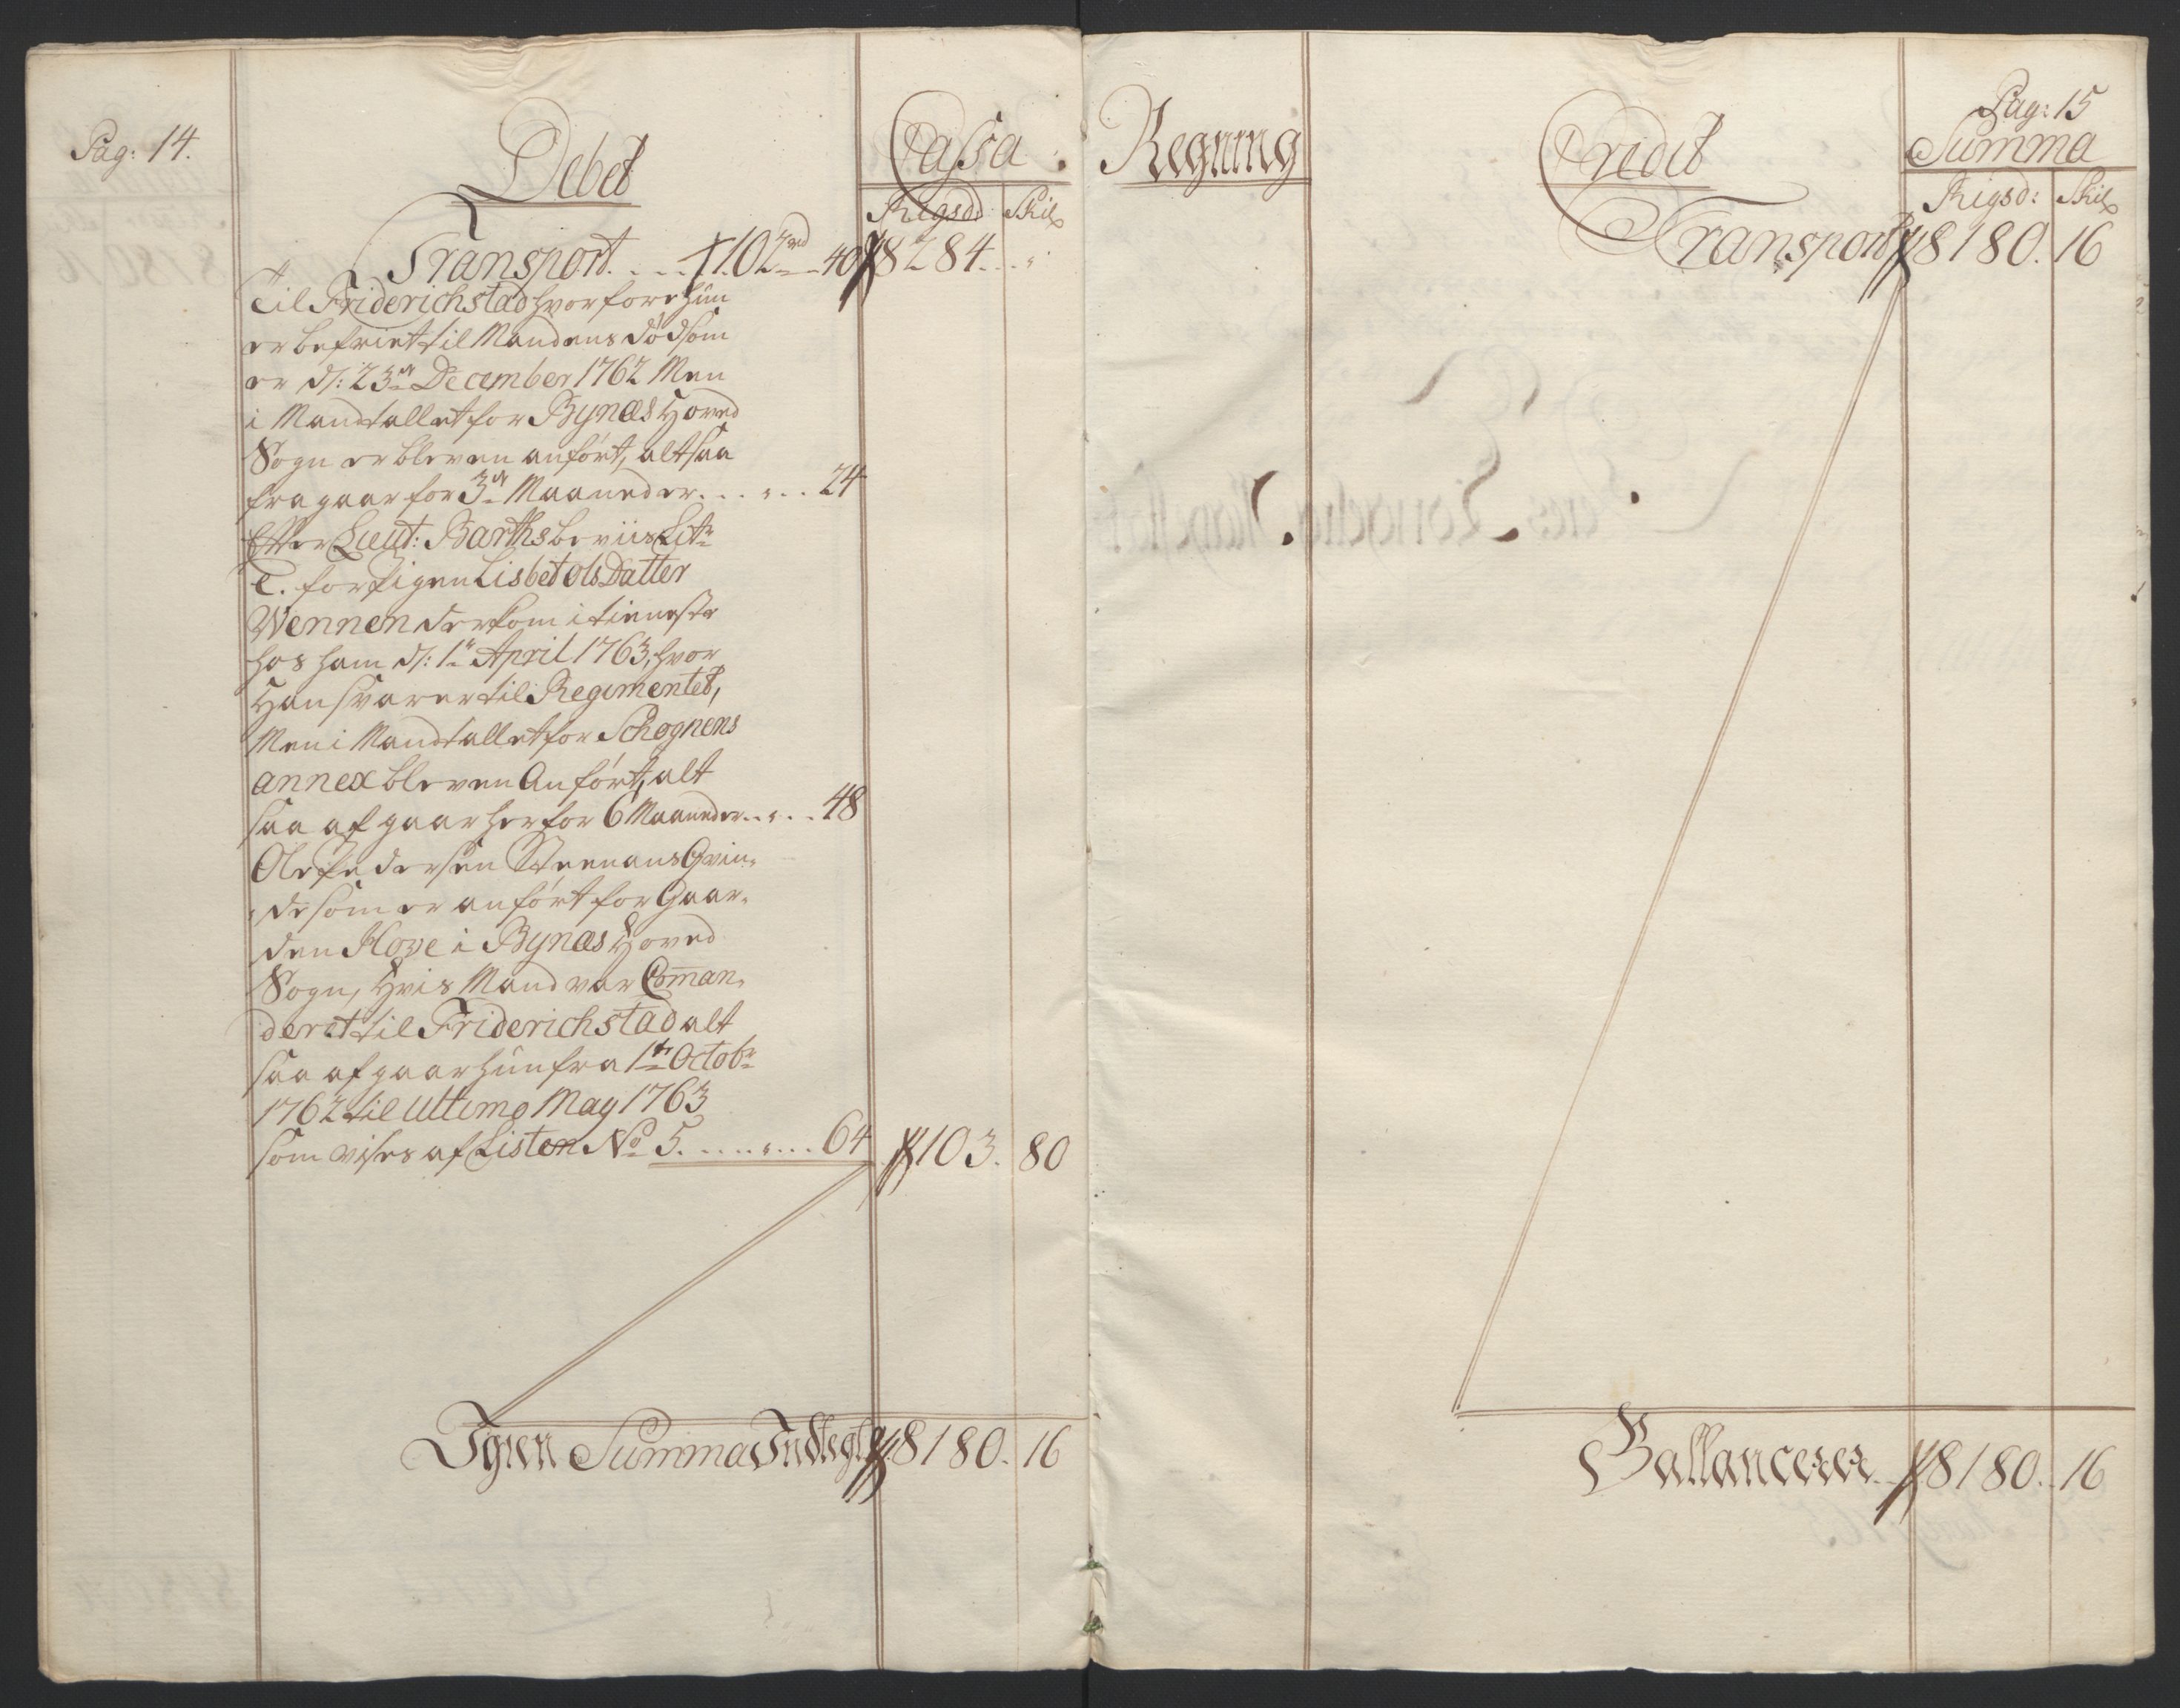 Pag: 14.
Debet
Cassa
Rigsd: Skil
Transport. . . . 102 rd 40 8284. . . "
Til Friderichstad hvorfore hun
er befriet til Mandens Død som
er d: 23de December 1762 Men
i Mandtallet for Bynæs Hoved
Sogn er bleven anført, altsaa
fragaar for 3de Maaneder. . . " . . 24
Efter Lieut: Barths beviis Litr
C. for Pigen Lisbet Ols Datter
Wennen der kom i tieneste
hos ham d: 1te April 1763, hvor
Han svarer til Regimentet,
Men i Mandtallet for Schognens
annex bleven Anført, alt
saa afgaar her for 6 Maaneder. . " . . 48
Ole Pedersen Steenans Qvin-
de som er anført for Gaar-
den Hove i Bynæs Hoved
Sogn, Hvis Mand var Com̄an-
deret til Friderichstad alt
saa afgaar hun fra 1te Octobr
1762 til Ultimo May 1763
som vises af Listen No 5. . . . . " . . . 64 103. 80
Igien Summa Indtegt 8180. 16
Regning
Credit
Pag: 15
Summa
Rigsd: Skil
Transport 8180. 16
Ballancerer. . 8180. . 16